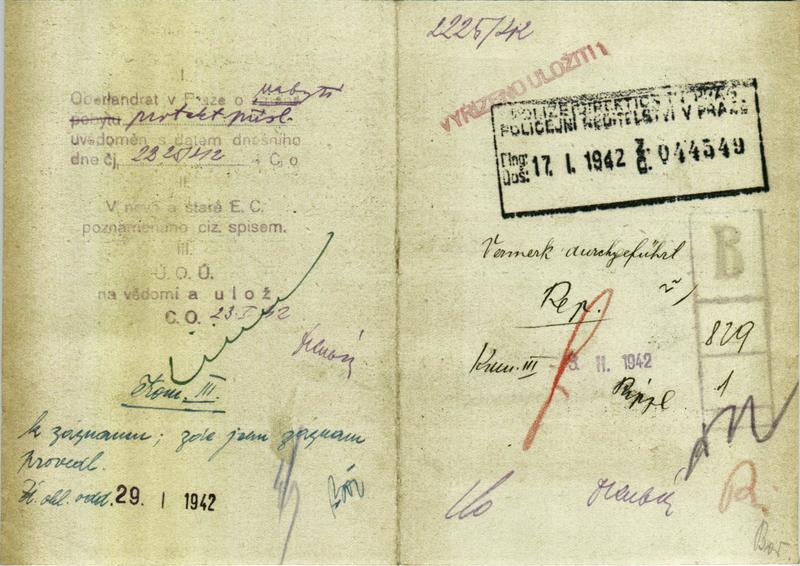 I.
Oberlandrat v Praze o nabytí
pobytu protekt. přísl.
uvědoměn s datem dnešního
dne čj. 2225/42 C. o
II.
V nové a staré E. C.
poznamenáno ciz. spisem.
III.
Ú. O. Ú.
na vědomí a ulož
C. O. 23. I. 42
Kom. III.
k záznamu; zde jsem záznam
provedl.
odd. 29. I 1942
2225/42
VYŘÍZENO ULOŽITI 1
POLIZEIDIREKTION IN PRAG
POLICEJNÍ ŘEDITELSTVÍ V PRAZE
Eing:
Doš: 17. I. 1942 Z. č. 044549
Vermerk durchgeführt
B
Rep.
829
Kom. III - 3. II. 1942
1